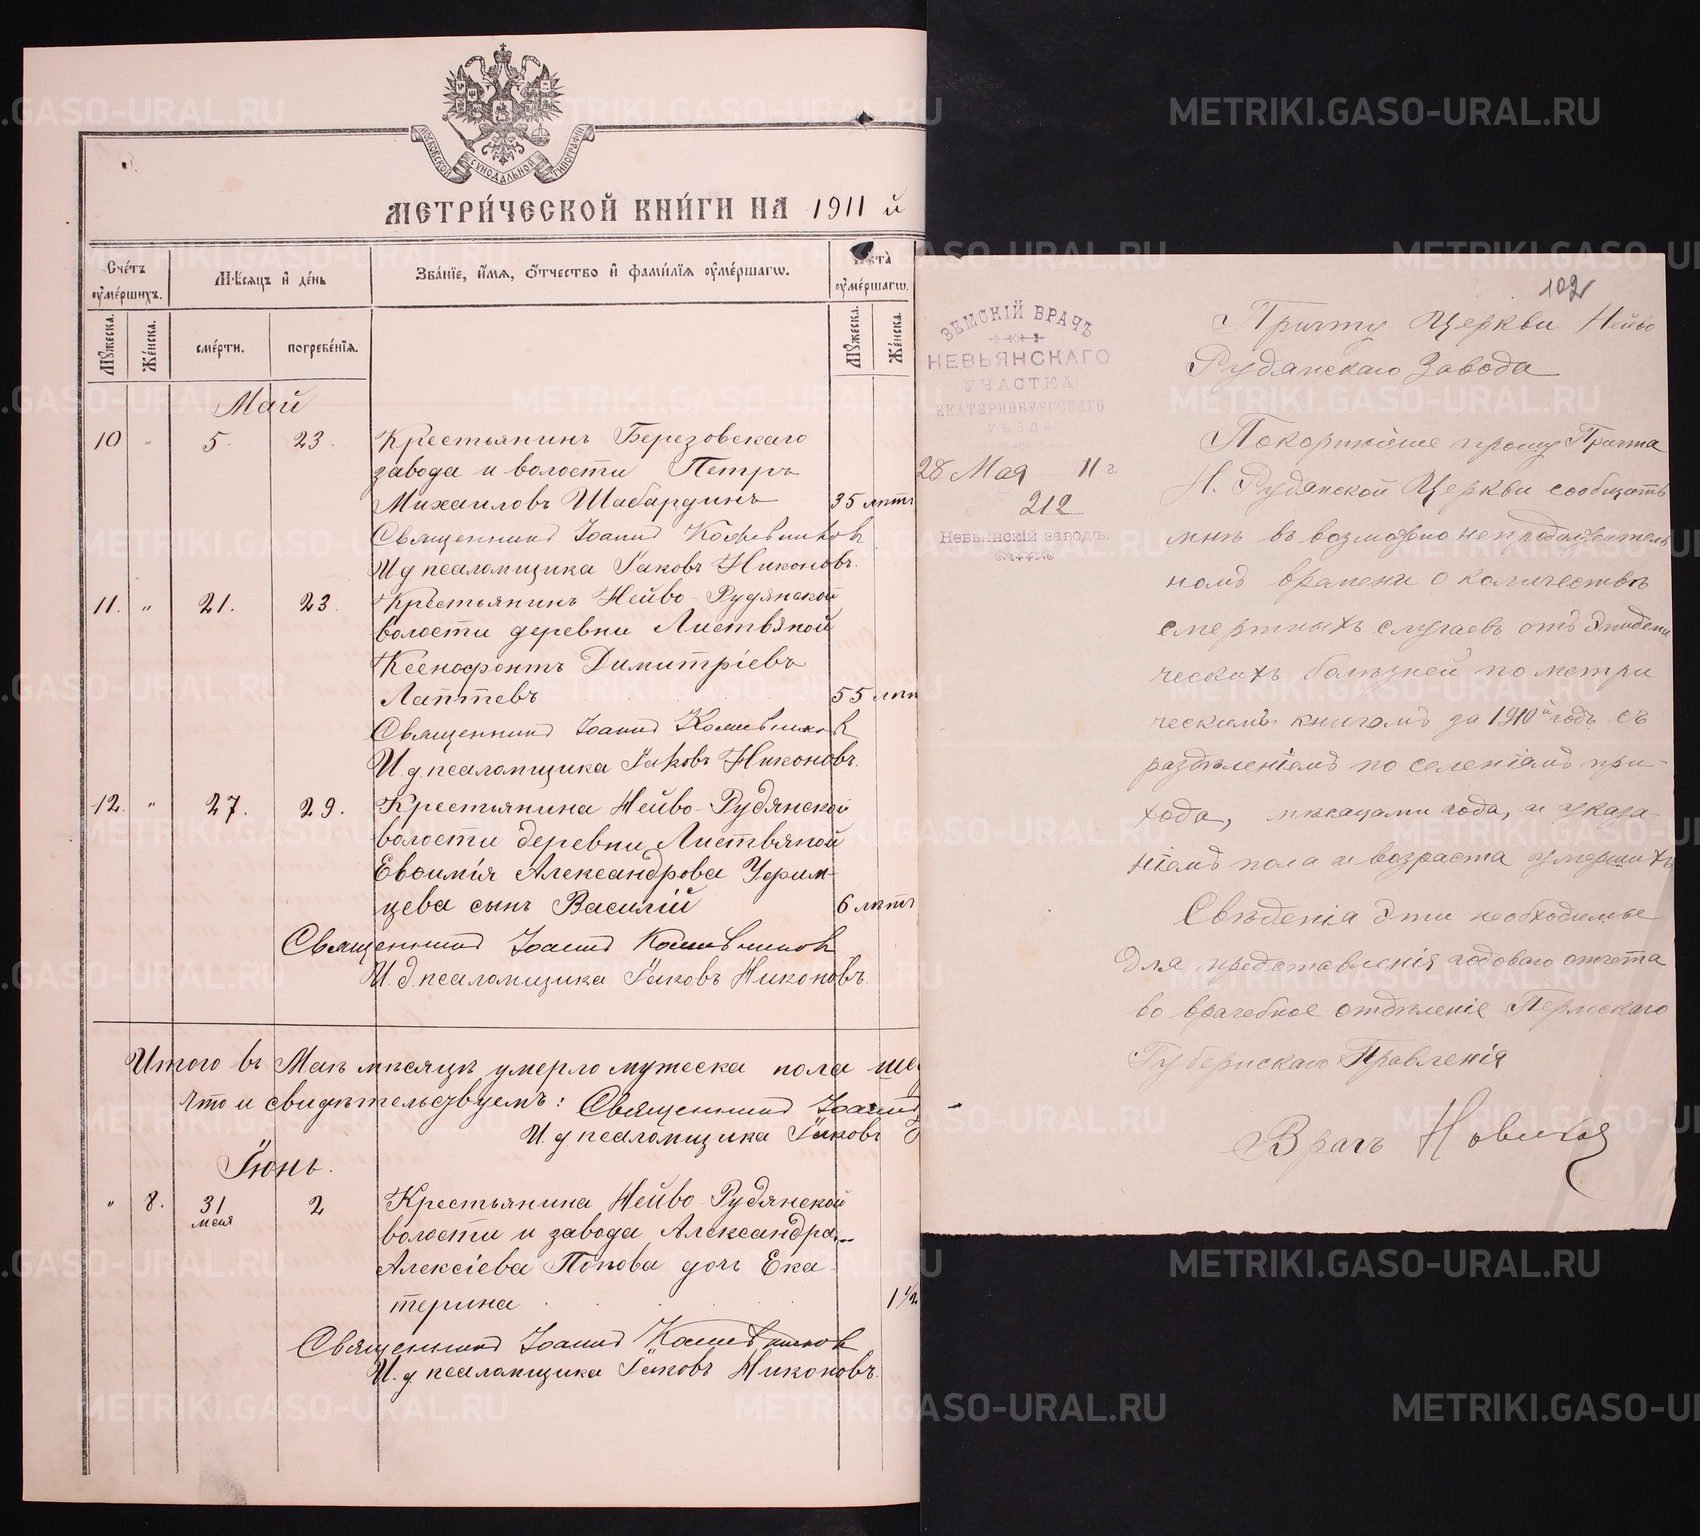 МОСКОВСКОЙ СѴНОДАЛЬНОЙ ТИПОГРАФІИ
МЕТРИ́ЧЕСКОЙ КНИ́ГИ НА 1911 й
Сче́тъ ᲂу҆ме́ршихъ.
Мѣ́сяцъ и҆ де́нь
Зва́нїе, и҆́мѧ, ѻ҆́тчество и҆ фами́лїѧ ᲂу҆ме́ршагѡ.
Лѣ́та ᲂу҆ме́ршагѡ.
Мꙋ́жеска.
Же́нска.
сме́рти.
погребе́нїѧ.
Мꙋ́жеска.
Же́нска.
Май
10 " 5. 23. Крестьянинъ Березовскаго
завода и волости Петръ
Михаиловъ Шабардинъ 35 лѣтъ
Священникъ Іоаннъ Кожевников
И д псаломщика Іаковъ Никоновъ.
11. " 21. 23. Крестьянинъ Нейво-Рудянской
волости деревни Листвяной
Ксенофонтъ Димитріевъ
Лаптевъ 55 лѣт
Священникъ Іоаннъ Кожевников
И. д псаломщика Іаковъ Никоновъ.
12. " 27. 29. Крестьянина Нейво-Рудянской
волости деревни Листвяной
Евѳимія Александрова Уфим-
цева сынъ Василій 6 лѣтъ
Священникъ Іоаннъ Кожевников
И. д псаломщика Іаковъ Никоновъ.
Итого въ Маѣ мѣсяцѣ умерло мужеска пола ше
что и свидѣтельствуемъ: Священникъ Іоаннъ
И. д псаломщика Іаковъ
Іюнь.
" 8. 31 мая 2 Крестьянина Нейво-Рудянской
волости и завода Александра
Алексіева Попова дочь Ека-
терина 1 1/2
Священникъ Іоаннъ Кожевников
И. д псаломщика Іаковъ Никоновъ.
102
ЗЕМСКІЙ ВРАЧЪ
НЕВЬЯНСКАГО
УЧАСТКА
ЕКАТЕРИНБУРГСКАГО
УѢЗДА
28 Мая 11 г.
212
Невьянскій заводъ.
Причту Церкви Нейво
Рудянскаго Завода
Покорнѣйше прошу Причта
Н. Рудянской Церкви сообщить
мнѣ въ возможно непродолжитель
номъ времени о количествѣ
смертныхъ случаевъ отъ эпидеми
ческихъ болѣзней по метри
ческимъ книгамъ за 1910й годъ съ
раздѣленіемъ по селеніямъ при-
хода, мѣсяцами года, и указа-
ніемъ пола и возраста умершихъ
Свѣденія эти необходимые
для представленія годоваго отчета
во врачебное отдѣленіе Пермскаго
Губернскаго Правленія
Врачъ Новиков
METRIKI.GASO-URAL.RU